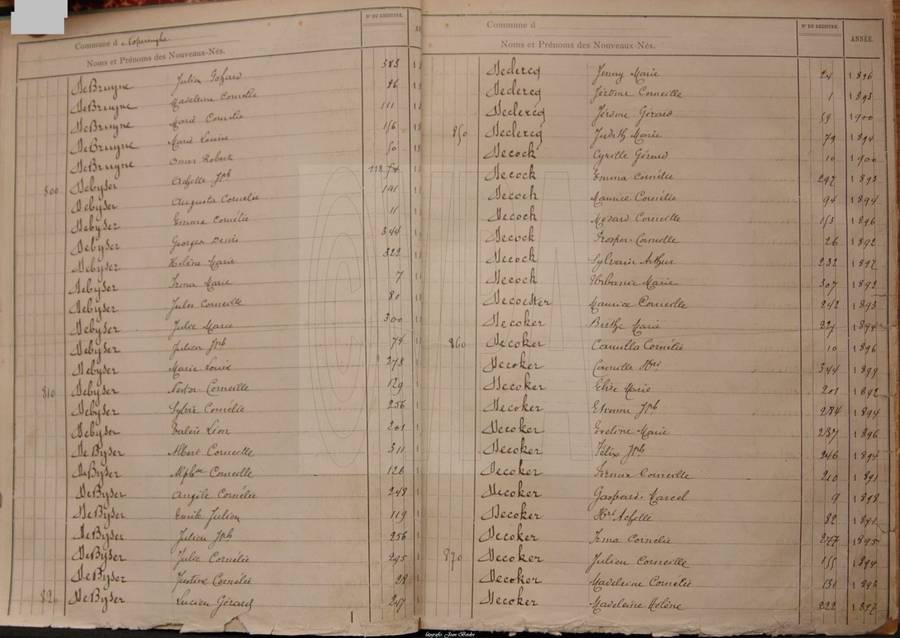 Commune d Poperinghe
Noms et Prénoms des Nouveaux-Nés.
N° DU REGISTRE.
DeBruyne Julien 383
DeBruyne Madeleine Cornélie 96
DeBruyne Marie Cornélie 111
DeBruyne Marie Louise 116
DeBruyne Omer Robert 50
800 Debyser Achille Jph
Debyser Augusta Cornélie 191
Debyser Emma Cornélie 11
Debyser Georges Denis 344
Debyser Hélène Marie 322
Debyser Irma Marie 7
Debyser Jules Corneille 80
Debyser Julie Marie 300
Debyser Julien Jph 78
Debyser Marie Louise 278
810 Debyser Nestor Corneille 129
Debyser Sylvie Cornélie 256
Debyser Valère Léon 201
DeByser Albert Corneille 311
DeByser Alphse Corneille 126
DeByser Angèle Cornélie 248
DeByser Emile Julien 119
DeByser Julien Jph 256
DeByser Julie Cornélie 295
DeByser Justine Cornélie 28
820 DeByser Lucien Gérard 247
Commune d
Noms et Prénoms des Nouveaux-Nés.
N° DU REGISTRE. ANNÉE.
Declercq Jenny Marie 24 1896
Declercq Jérôme Corneille 1 1893
Declercq Jérôme Gérard 59 1900
850 Declercq Judith Marie 79 1894
Decock Cyrille Gérard 10 1900
Decock Emma Cornélie 297 1893
Decock Maurice Cornélie 94 1894
Decock Médard Corneille 153 1896
Decock Prosper Corneille 26 1892
Decock Sylvain Arthur 232 1897
Decock Urbanie Marie 307 1892
Decoester Maurice Corneille 242 1893
Decoker Berthe Marie 227 1894
860 Decoker Camilla Cornélie 10 1896
Decoker Camille Hri 344 1899
Decoker Elise Marie 201 1892
Decoker Etienne Jph 284 1894
Decoker Eveline Marie 237 1896
Decoker Félix Jph 246 1894
Decoker Firmin Corneille 210 1891
Decoker Gaspard Marcel 9 1898
Decoker Hri Achille 82
Decoker Irma Cornélie 277 1895
870 Decoker Julien Corneille 155 1894
Decoker Madeleine Cornélie 131
Decoker Madeleine Hélène 222 1897